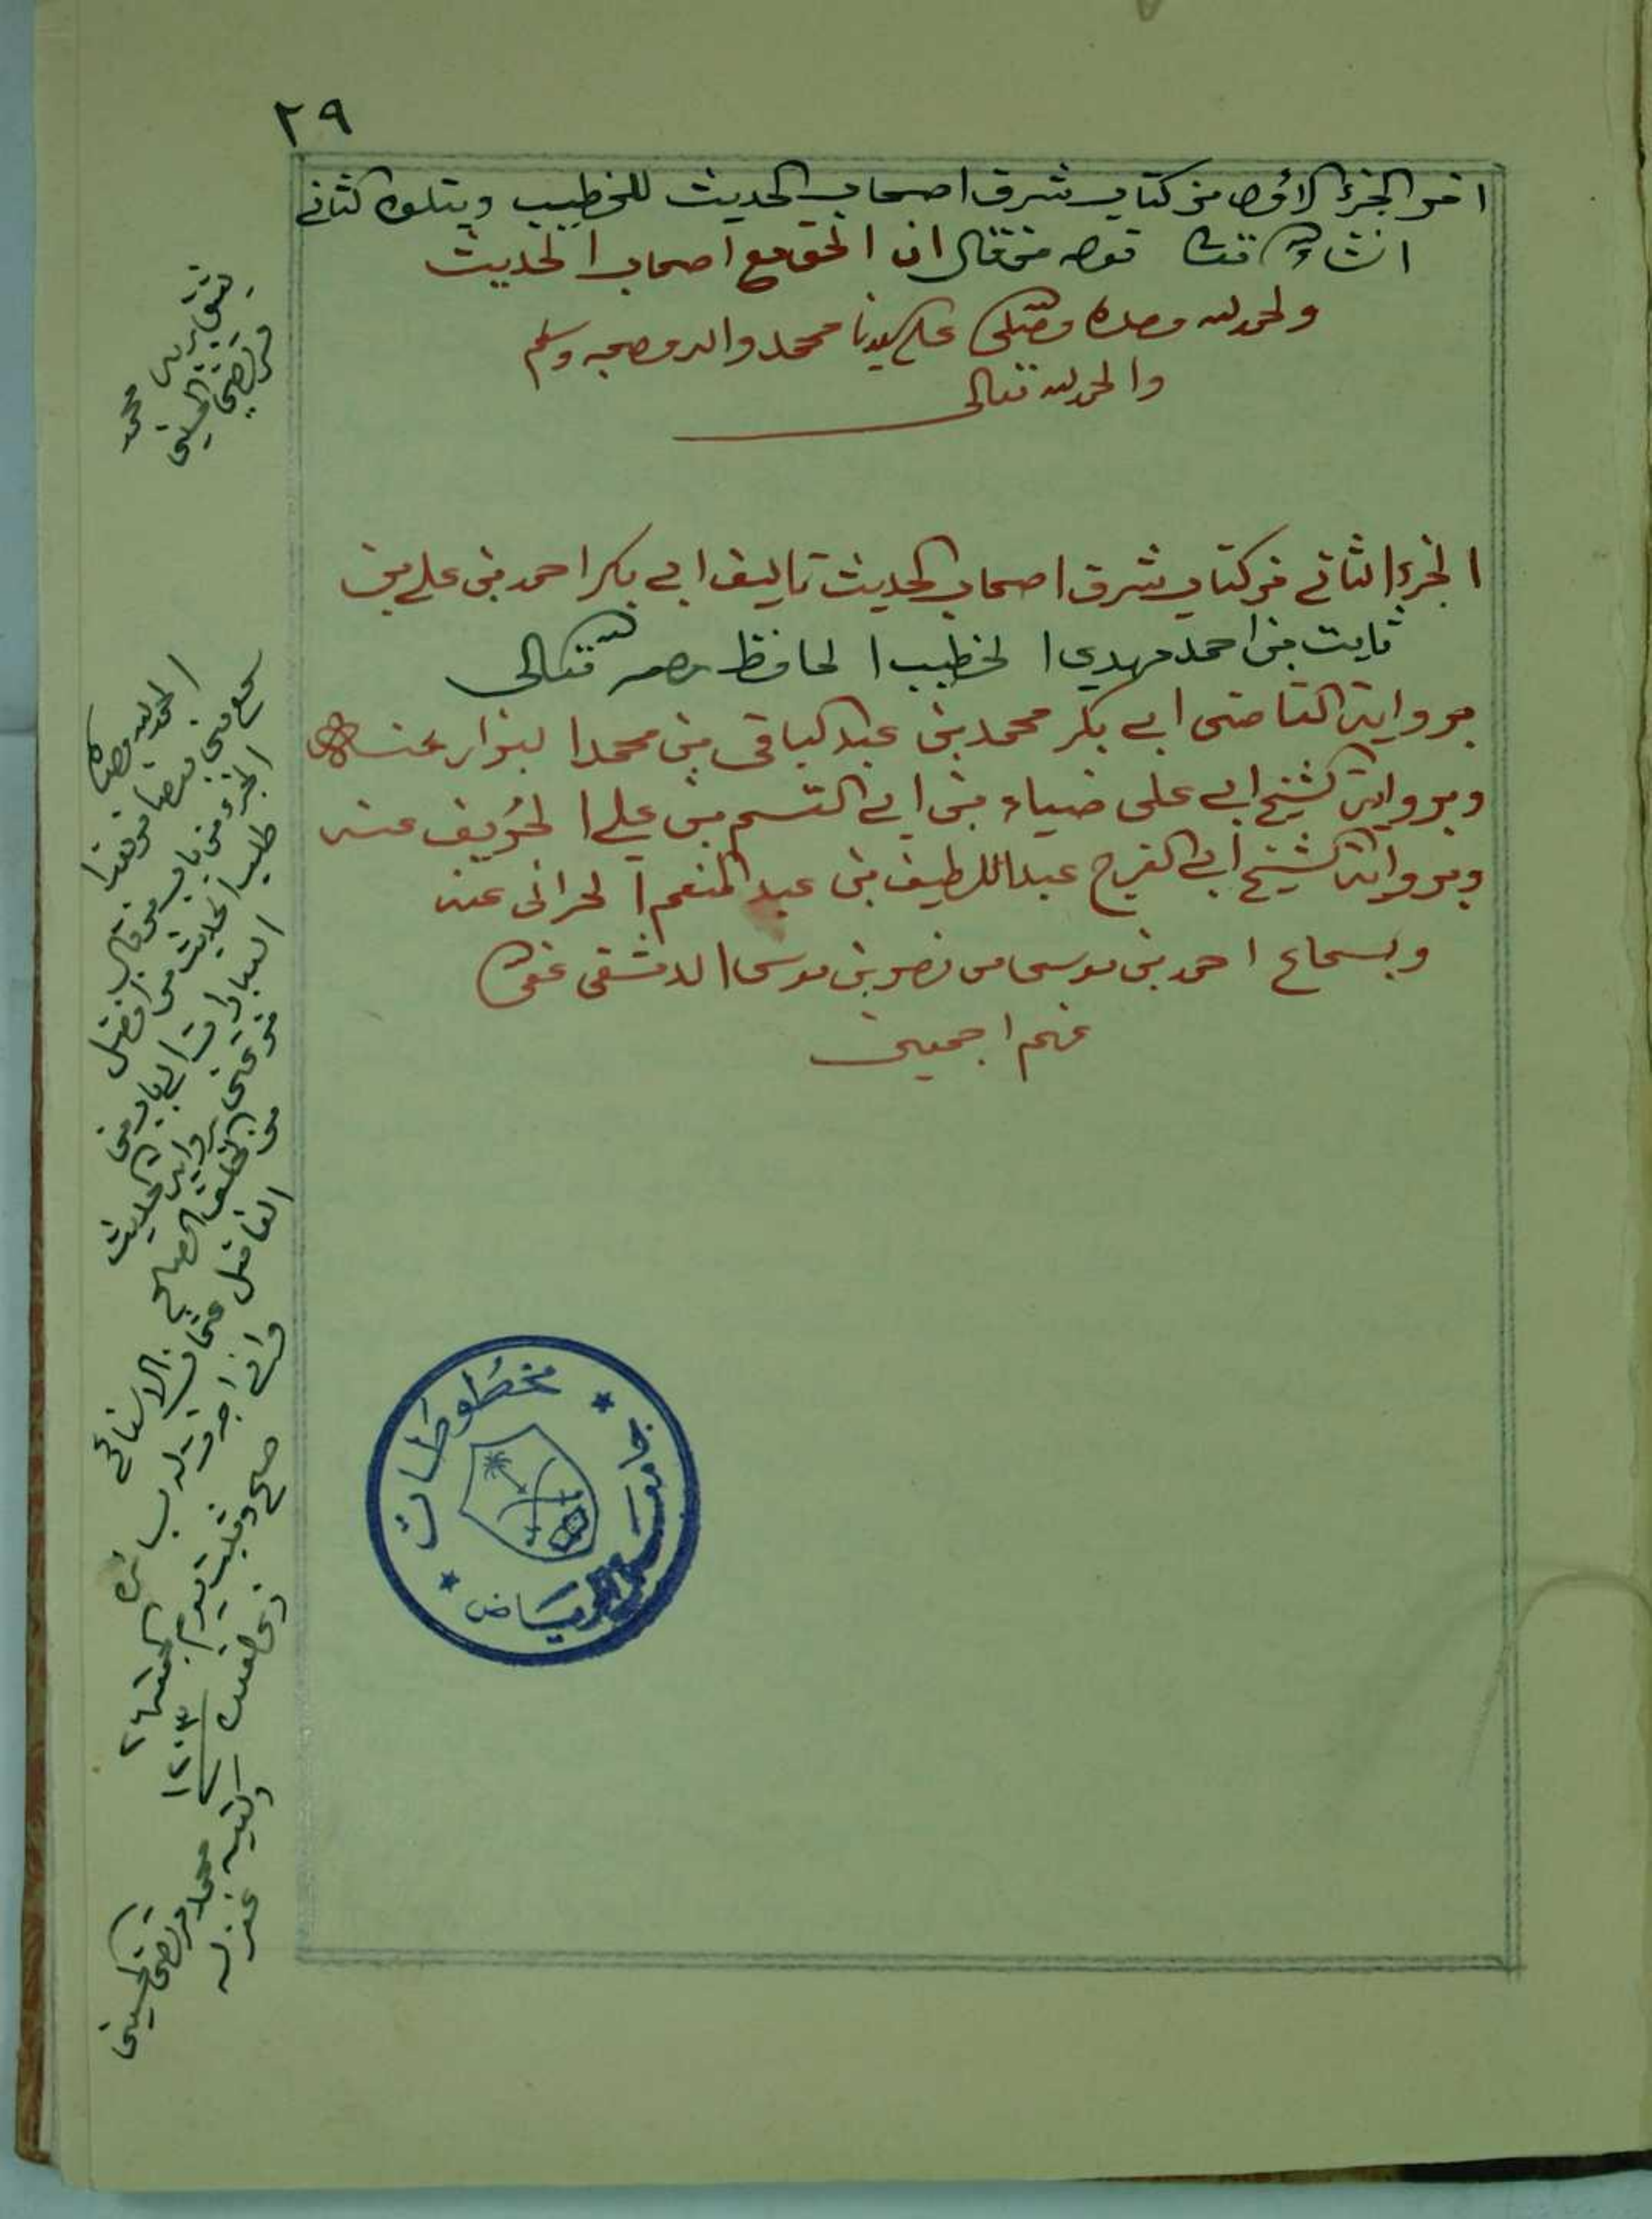 ٢٩
اخر الجزء الاول من كتاب شرف اصحاب الحديث للخطيب ويتلوه الثاني
انشاء الله تعالى قول من قال ان الحق مع اصحاب الحديث
والحمد لله وحده وصلى على سيدنا محمد واله وصحبه وسلم
والحمد لله تعالى
الجزء الثاني من كتاب شرف اصحاب الحديث تاليف ابي بكر احمد بن علي بن
ثابت بن احمد مهدي الخطيب الحافظ رحمه الله تعالى
برواية القاضي ابي بكر محمد بن عبد الباقي بن محمد البزار عنه
وبرواية الشيخ ابي علي ضياء بن ابي القسم بن علي الخريف عنه
وبرواية الشيخ ابي الفرج عبد اللطيف بن عبد المنعم الحراني عنه
وبسماع احمد بن موسى من نصر بن موسى الدمشقي عفى الله
عنهم اجمعين
محمد
مرتضى الحسيني
الحمد لله وحده
سمع مني
الجزء من باب من قال
طلب الحديث من افضل
العبادات الى باب من
رواية الحديث
من الخلف الصالح
الفاضل عثمان
واني اجزت له بسائره
صح وثبت يوم
٢٤
ذي القعدة
١٢٠٣
وكتبه محمد مرتضى الحسيني
غفر له
مخطوطات
جامعة الرياض